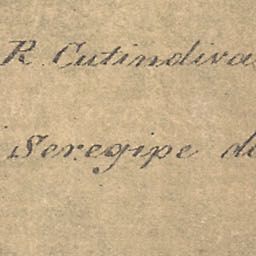 R. Cutindiva
Seregipe de